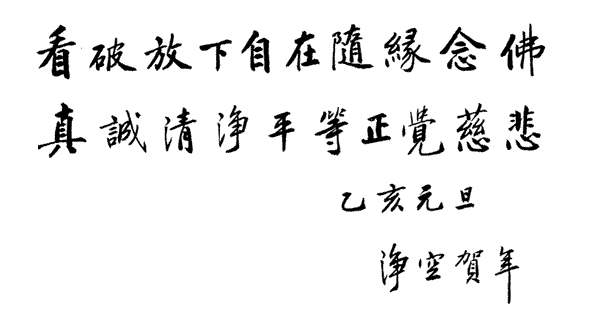 看破放下自在隨緣念佛
真誠清淨平等正覺慈悲
乙亥元旦
淨空賀年